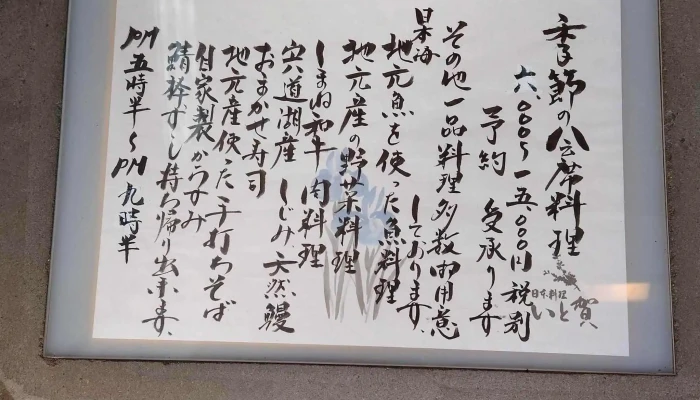 季節の会席料理
六、〇〇〇〜一五、〇〇〇円 税別
予約 受承ります
その他一品料理多数御用意
しております。
日本海
地元魚を使った魚料理
地元産の野菜料理
しまね和牛 肉料理
宍道湖産 しじみ、天然鰻
おまかせ寿司
地元産使った手打ちそば
自家製からすみ
鯖棒ずし持ち帰り出来ます、
PM 五時半〜PM 九時半
日本料理
いと賀